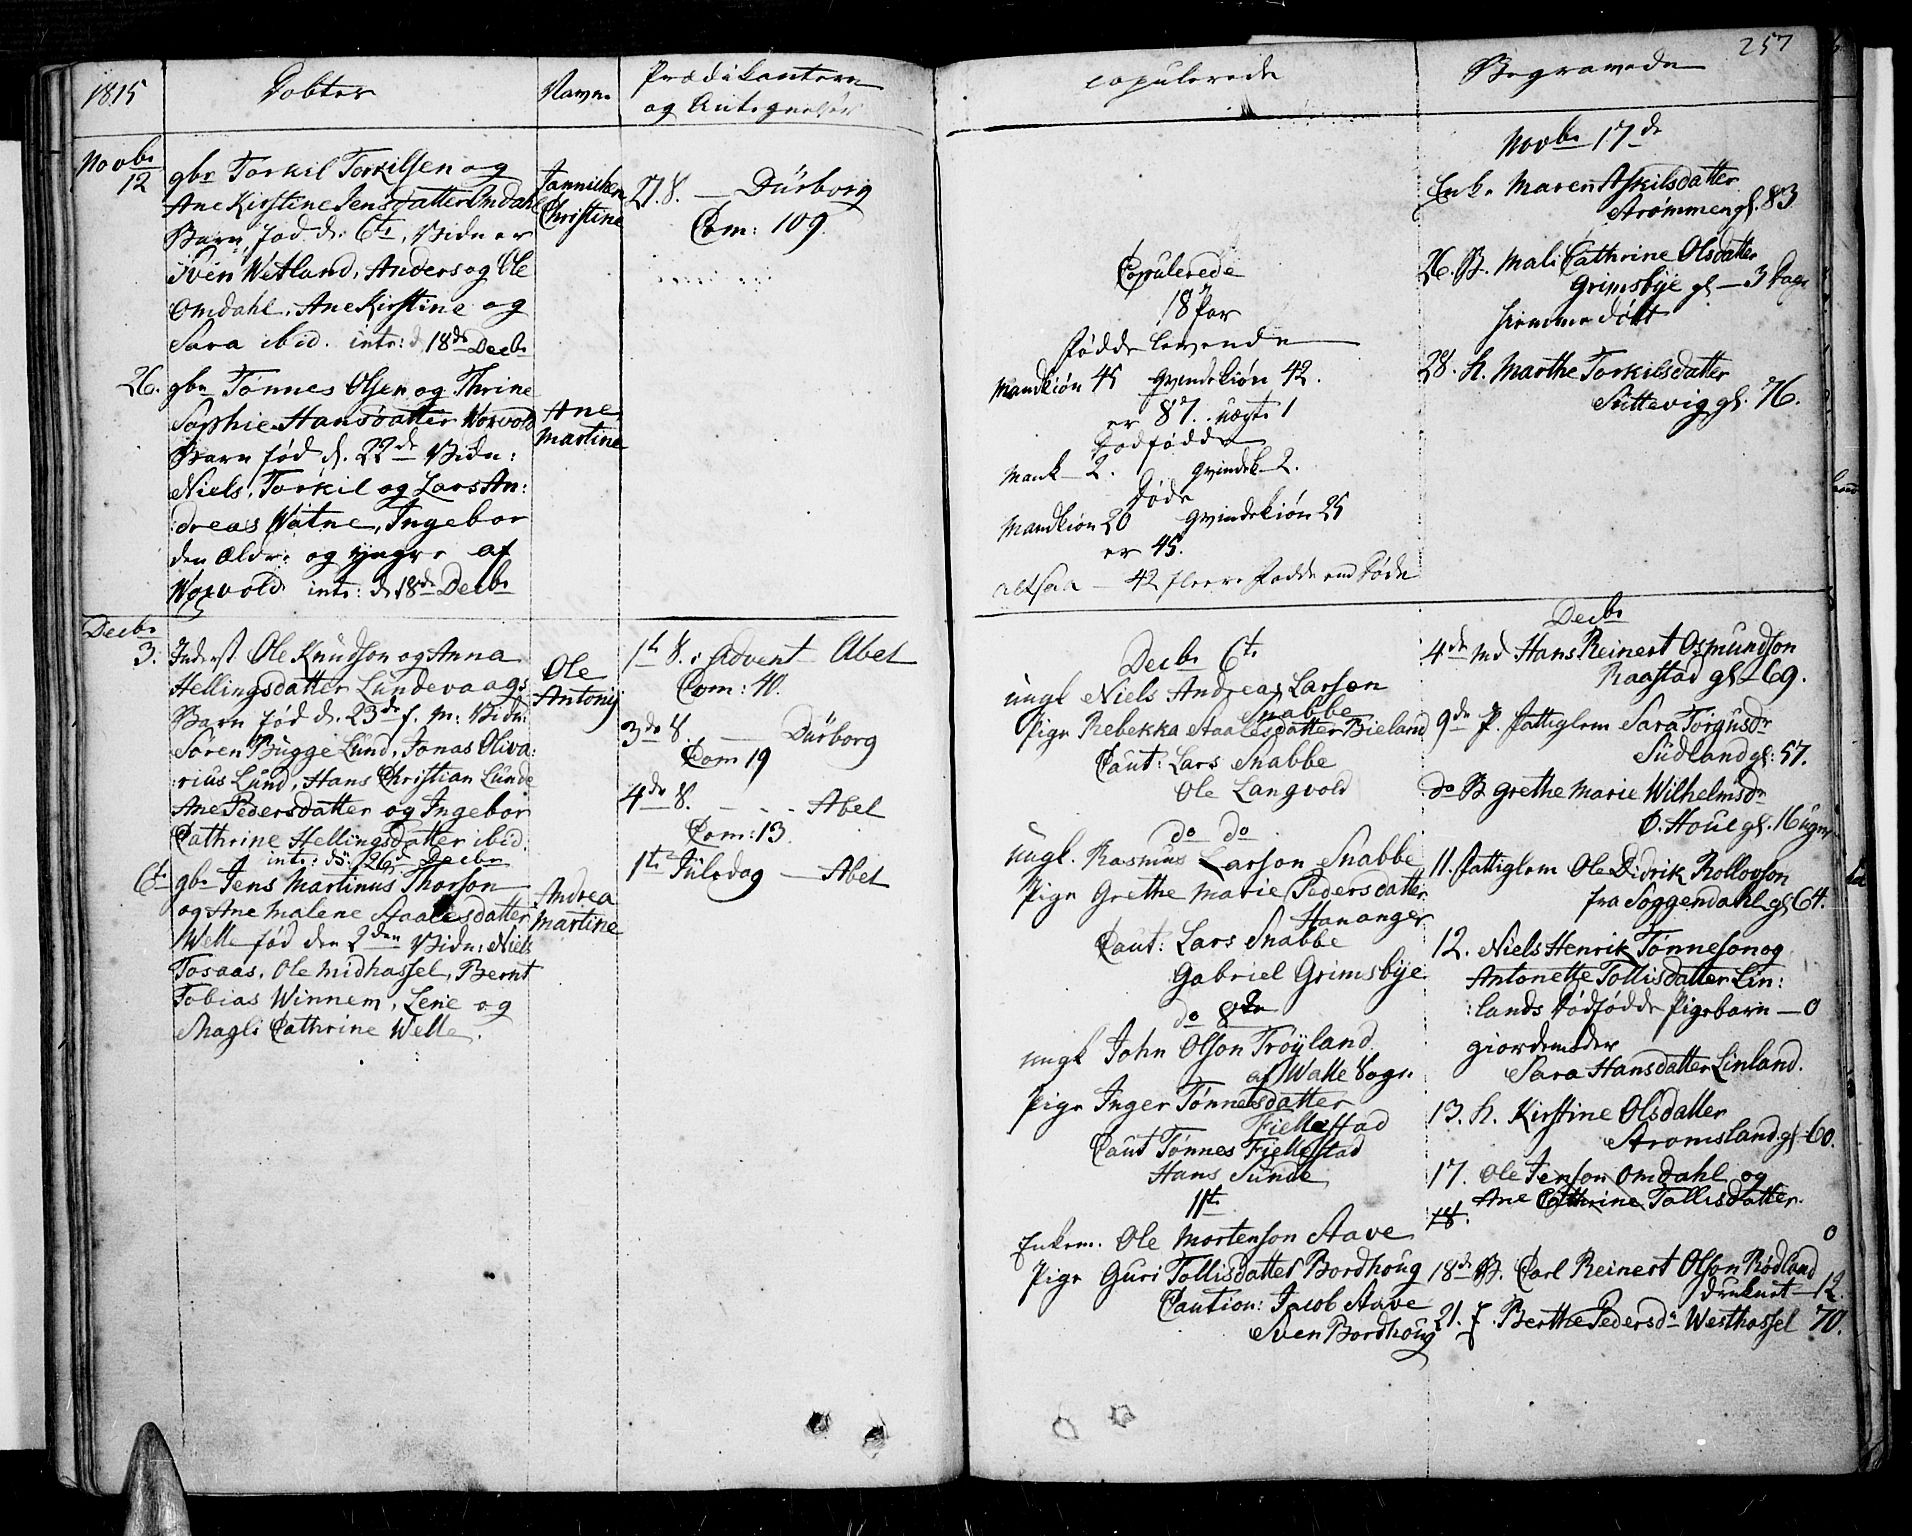 1815
Døbte
Navne
Prædikanterne
og Antegnelser
Novbr
12
gbr Torkil Torkilsen og
Ane Kirstine Jensdatter Omdahl
Barn, fød d. 6te, Vidner
Sven Wetland, Anders og Ole
Omdahl, Ane Kirstine og
Sara ibid. intr: d 18de Decbr
Jannichen
Christine
26.
gbr Tønnes Olsen og Thrine
Sophie Hansdatter Worvold
Barn fød d. 22de Vidn:
Niels, Torkil og Lars An:
:dreas Watne, Ingebor
den Ældre og yngre af
Worvold intr: d 18de Decbr
Ane
Martine
27. S. — Dürborg
Com: 109.
Decbr
3.
Inderst Ole Knudson og Anna
Hellingsdatter Lundevaags
Barn fød d. 23de f. M: Vidn:
Søren Bugge Lund, Jonas Oliva:
:rius Lund, Hans Christian Lunde
Ane Pedersdatter og Ingebor
Cathrine Hellingsdatter ibid.
intr: d. 26d Decbr
Ole
Antonij
6te
gbr Jens Martinus Thorson
og Ane Malene Staalesdatter
Welle fød den 2den Vidn: Niels
Tosaas, Ole Midhassel, Bernt
Tobias Winnem, Lene og
Magli Cathrine Welle.
Andrea
Martine
1te S. i Advent — Abel
Com: 40.
3de S. — Dürborg
Com 19
4de S. - - - Abel
Com: 13.
1te Juledag — Abel
257
Copulerede
Begravede
Copulerede
18 Par
Fødde levende
Mandkiøn 45 Qvindekiøn 42.
er 87. uægte 1
Dødfødde
Mank — 2. Qvindek — 2.
Døde
Mandkiøn 20 Qvindekiøn 25
er 45.
altsaa — 42 fleere Fødde end Døde
Decbr 6te
ungk Niels Andreas Larsen
Snabbe
Pige Rebekka Staalesdatter Bieland
Caut: Lars Snabbe
Ole Langvold
do do
ungk. Rasmus Larson Snabbe
Pige Grethe Marie Pedersdatter
Hananger
Caut: Lars Snabbe
Gabriel Grimsbye
do 8de
ungk John Olson Trøyland
af Walle Sogn
Pige Inger Tønnesdatter
Fiellestad
Caut Tønnes Fiellestad
Hans Sunde
11te
Enkem. Ole Mortenson Stave
Pige Guri Tollisdatter Bordhoug
Caution: Jacob Stave
Sven Bordhoug
Novbr 17de
Enke Maren Askilsdatter
Strømmen gl. 83
26. B. Mali Cathrine Olsdatter
Grimsbye gl — 3 Dage
hiemmedøbt
28. h. Marthe Torkilsdatter
Suttevig gl. 76.
Decbr
4de Md Hans Reinert Osmundson
Raastad gl — 69.
9de P. Fattiglem Sara Torgusdr
Sudland gl: 57.
do B Grethe Marie Wilhelmsdr
Ø. Houe gl. 16 uger
11. Fattiglem Ole Didrik Rollovson
fra Soggendahl gl 64.
12. Niels Henrik Tønneson og
Antonette Tollisdatter Lin:
:lands dødfødde Pigebarn — 0
giordemoder
Sara Hansdatter Linland.
13. h. Kirstine Olsdatter
Stromsland gl — 60.
17. Ole Jenson Omdahl og
Ane Cathrine Tollisdatter
18.
0
18de B. Carl Reinert Olson Rødland
druknet — 12.
21. f. Berthe Pedersdr Westhassel 70.